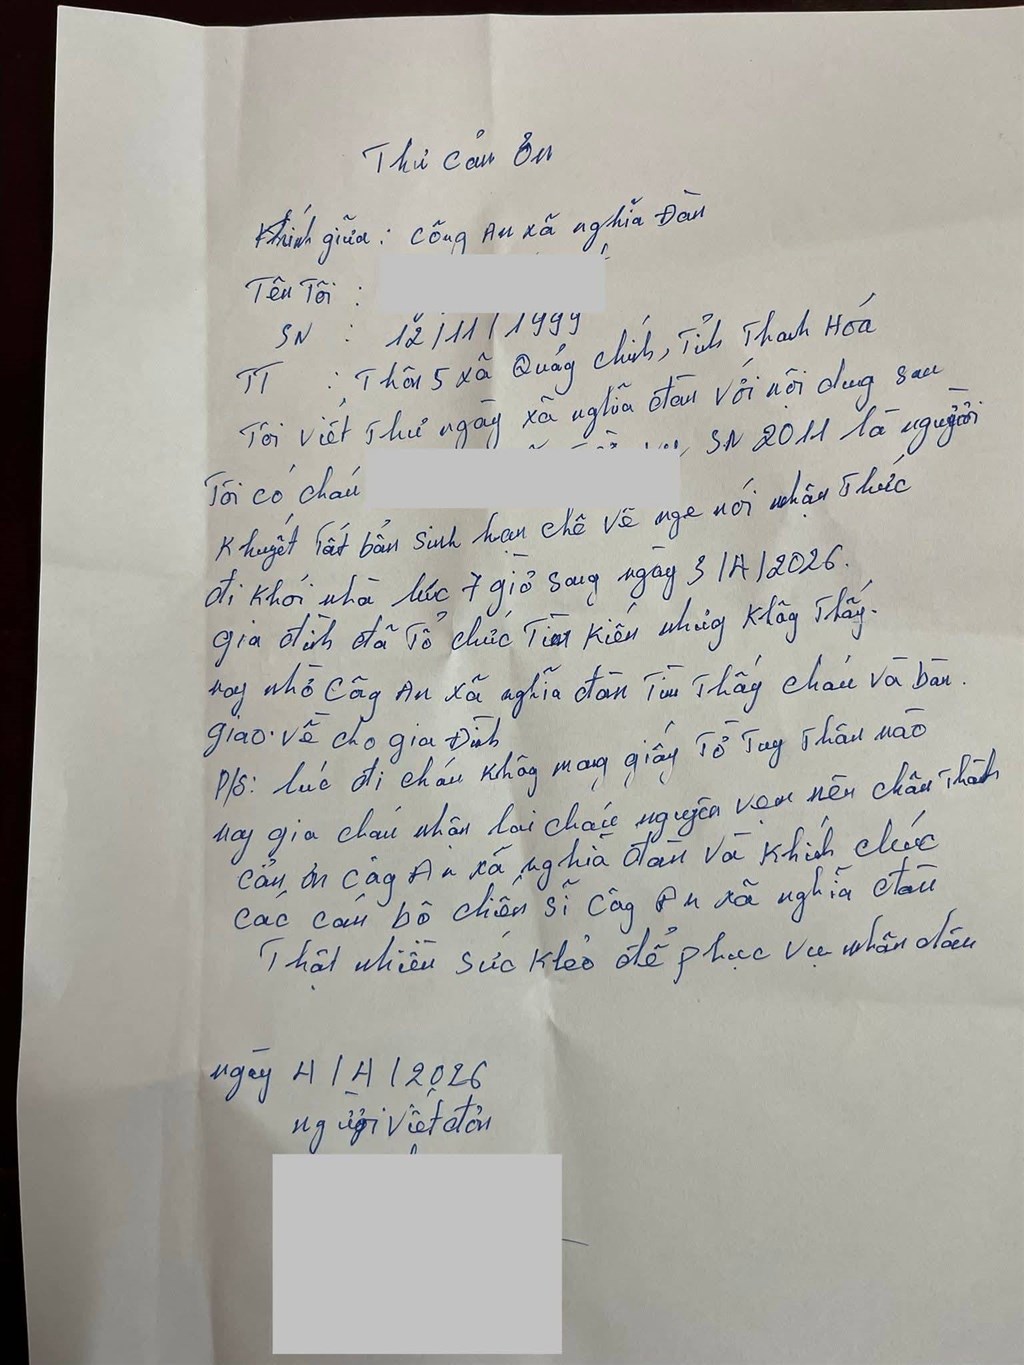 Thư cảm ơn
Khính giữa: Công An xã nghĩa Đàn
Tên Tôi :
SN : 12/11/1999
TT : Thôn 5 xã Quảng chính, Tỉnh Thanh Hóa
Tôi viết Thư ngày xã nghĩa đàn với nội dung sau
Tôi có cháu SN 2011 là người
Khuyết Tât bẩn sinh hạn chế về nge nói nhận Thức
đi Khỏi nhà lúc 7 giờ sáng ngày 3/4/2026.
gia đình đã Tổ chức Tìm Kiến nhưng Không Thấy.
nay nhờ Công An xã nghĩa đàn Tìm Thấy cháu và bàn.
giao về cho gia Đình
P/S: lúc đi cháu không mang giấy Tờ Tuy Thân nào
nay gia cháu nhận lại cháu nguyên vẹn nên chân Thành
cảm ơn Công An xã nghĩa đàn và Khính chúc
các cán bộ chiến sĩ Công An xã nghĩa đàn
Thật nhiều sức Khỏe để phục vụ nhân dân
ngày 4/4/2026
người viết đơn